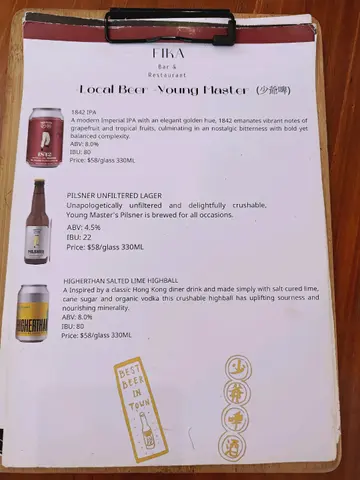 FIKA
Bar &
Restaurant
-Local Beer -Young Master (少爺啤)
1842 IPA
A modern Imperial IPA with an elegant golden hue, 1842 emanates vibrant notes of
grapefruit and tropical fruits, culminating in an nostalgic bitterness with bold yet
balanced complexity.
ABV: 8.0%
IBU: 80
Price: $58/glass 330ML
PILSNER UNFILTERED LAGER
Unapologetically unfiltered and delightfully crushable,
Young Master's Pilsner is brewed for all occasions.
ABV: 4.5%
IBU: 22
Price: $58/glass 330ML
HIGHERTHAN SALTED LIME HIGHBALL
A Inspired by a classic Hong Kong diner drink and made simply with salt-cured lime,
cane sugar and organic vodka this crushable highball has uplifting sourness and
nourishing minerality.
ABV: 8.0%
IBU: 80
Price: $58/glass 330ML
PILSNER
HIGHERTHAN
BEST
BEER
IN
TOWN